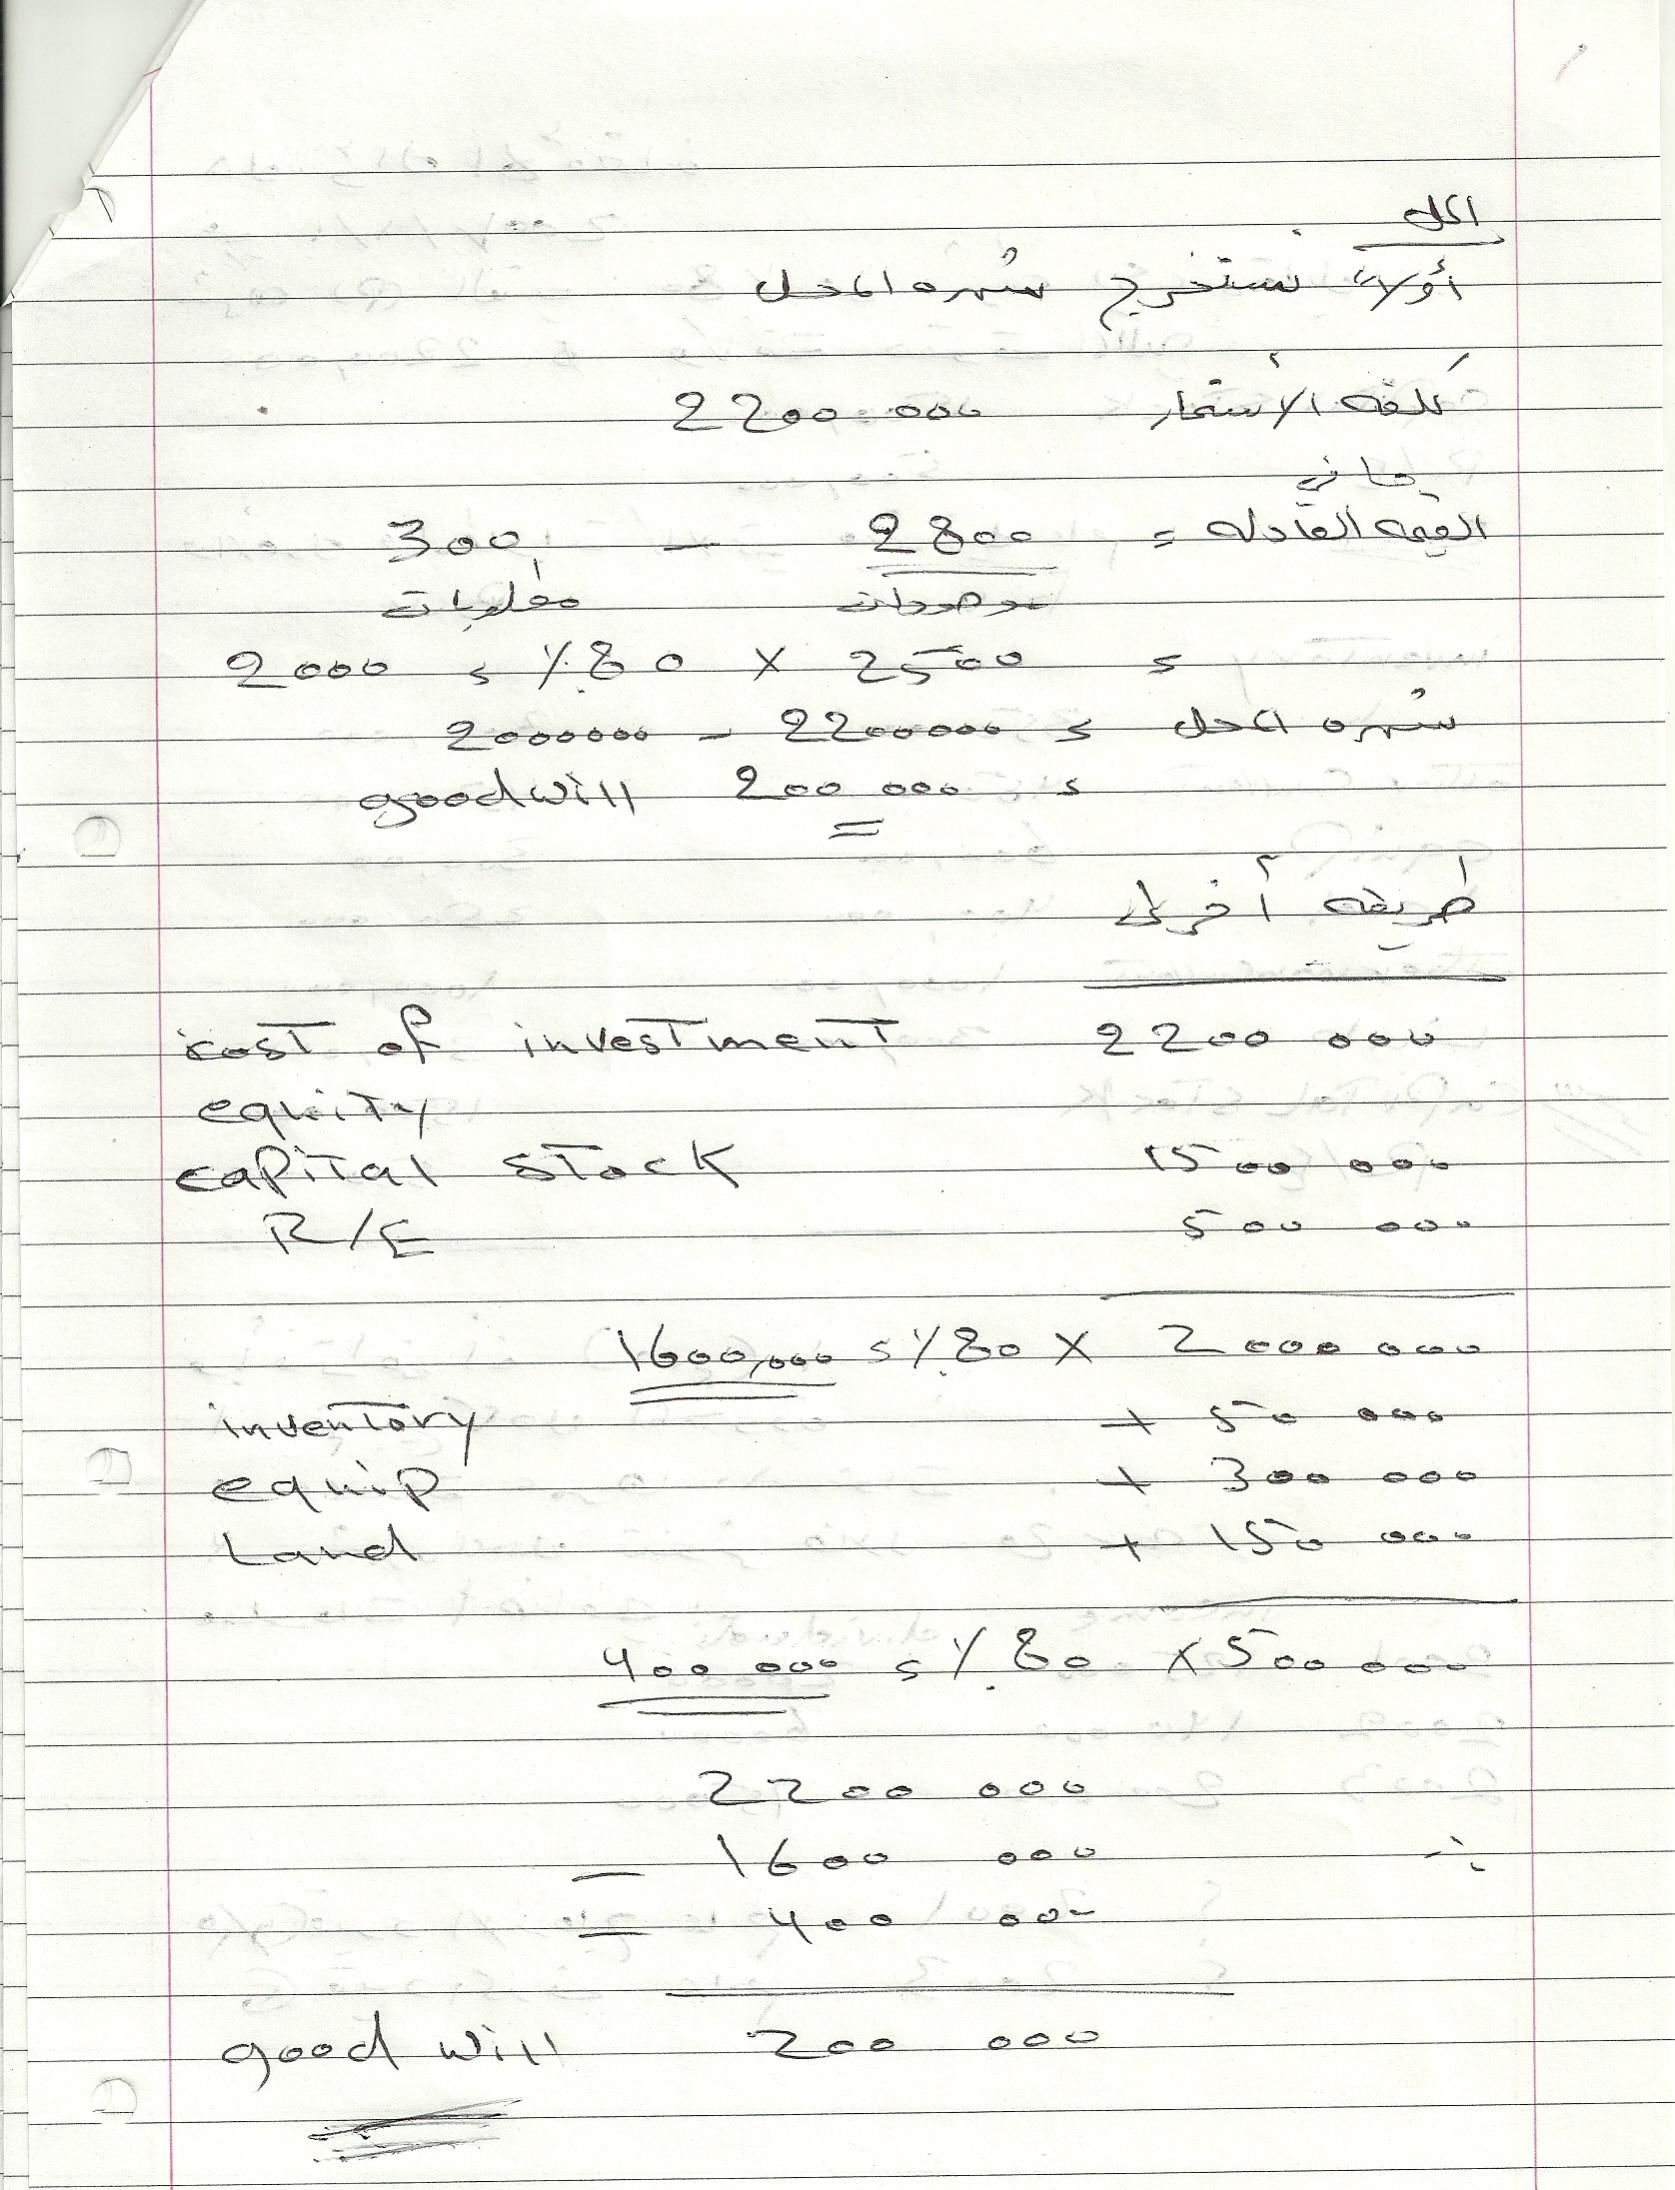 الحل
أولاً نستخرج شهره المحل
كلفه الأستثمار 2200 000
صافي
القيمه العادله = 2800 - 300
موجودات مطلوبات
= 2500 × 80٪ = 2000
شهره المحل = 2200000 - 2000000
= 200 000 goodwill
طريقه أخرى
cost of investment 2200 000
equity
capital stock 1500 000
R/E 500 000
2000 000 × 80٪ = 1600,000
inventory + 50 000
equip + 300 000
Land + 150 000
500 000 × 80٪ = 400 000
2200 000
- 1600 000
- 400 000
good will 200 000